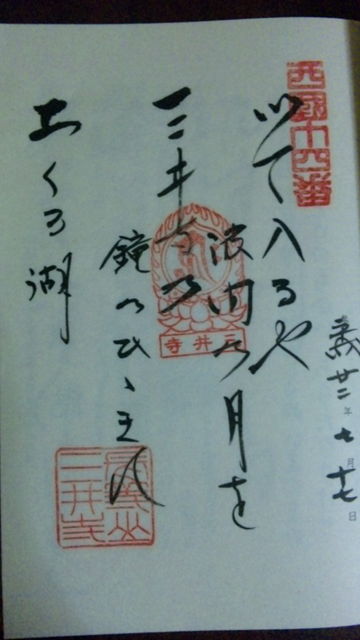 平成廿二年七月十七日
西國十四番
いて入るや
波間の月を
三井寺の
鐘のひゝきに
あくる湖
三井寺
長等山
三井寺